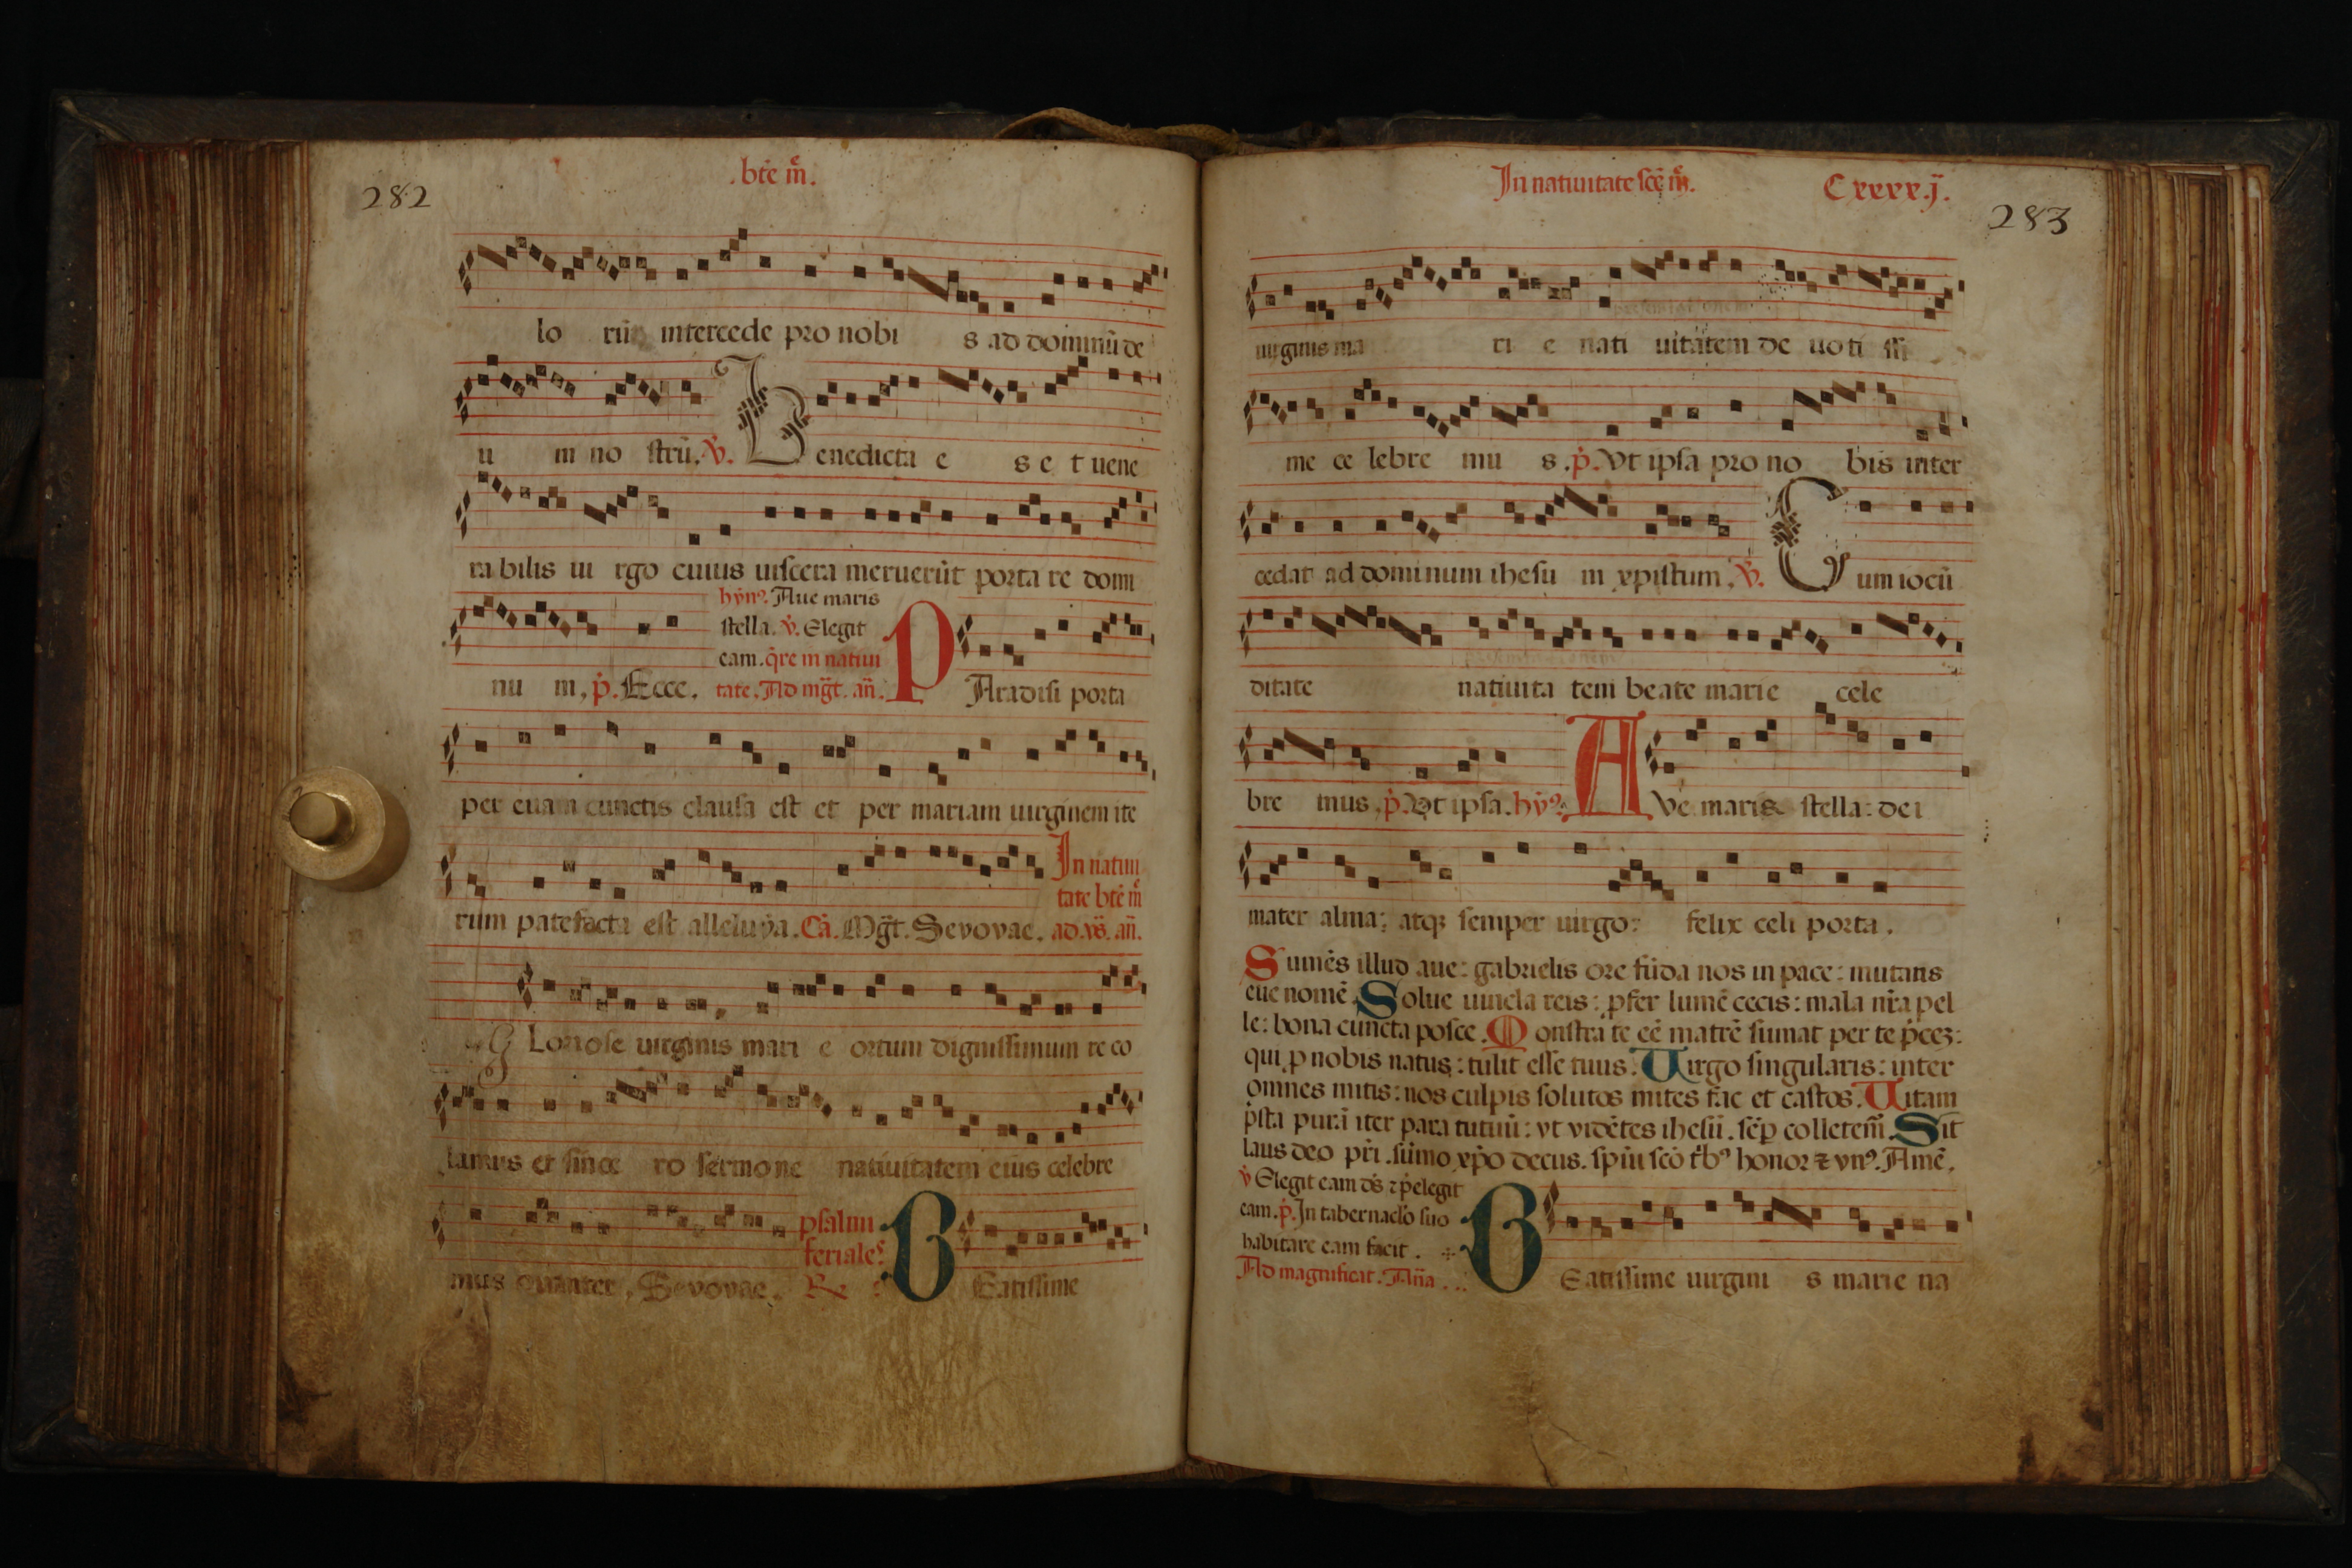 282
.btē m̄.
lo rū intercede pro nobi s ad dominū de
u m no strū. ℣. Benedicta e s e t uene
ra bilis ui rgo cuius uiscera meruerūt porta re domi
hȳn⁹. Aue maris
stella. ℣. Elegit
eam. q̄re in natiui
nu m, p̄. Ecce. tate. Ad mḡt. añ. PAradisi porta
per euam cunctis clausa est et per mariam uirginem ite
In natiui
tate btē m̄
rum patefacta est alleluya. Mḡt. Sevovae. ad. vs̄. añ.
GLoriose uirginis mari e ortum dignissimum re co
lamus et since ro sermone natiuitatem eius celebre
psalmi
feriales
mus Sevovae. BEatissime
In natiuitate scē m̄.
Cxxxx.j.
283
uirginis ma ri e nati uitatem de uoti ssi
me ce lebre mu s. p̄. Vt ipsa pro no bis inter
cedat ad dominum ihesu m xpistum. ℣. Cum iocū
ditate natiuita tem beate marie cele
bre mus. p̄. Vt ipsa. hȳ⁹. AVe maris stella: dei
mater alma: atqꝫ semper uirgo: felix celi porta.
Sumēs illud aue: gabrielis ore fūda nos in pace: mutans
eue nomē. Solue uincla reis: ꝓfer lumē cecis: mala nr̄a pel
le: bona cuncta posce. Monstra te eē matrē sumat per te p̄ceꝫ:
qui ꝓ nobis natus: tulit esse tuus. Uirgo singularis: inter
omnes mitis: nos culpis solutos mites fac et castos. Uitam
p̄sta purā iter para tutum: vt vidētes ihesū. sēꝑ colletem̄. Sit
laus deo pr̄i. sūmo xp̄o decus. spiū scō tb⁹ honor ⁊ vn⁹. Amē.
℣ Elegit eam ds̄ ⁊ p̄elegit
eam. p̄. In tabernaclo suo
habitare eam facit.
Ad magnificat. Añā. BEatissime uirgini s marie na